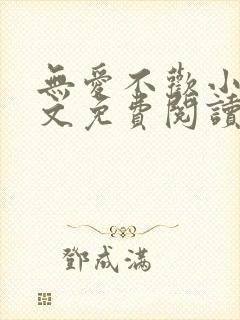 無愛不歡小
文免費閱讀
鄧成滿